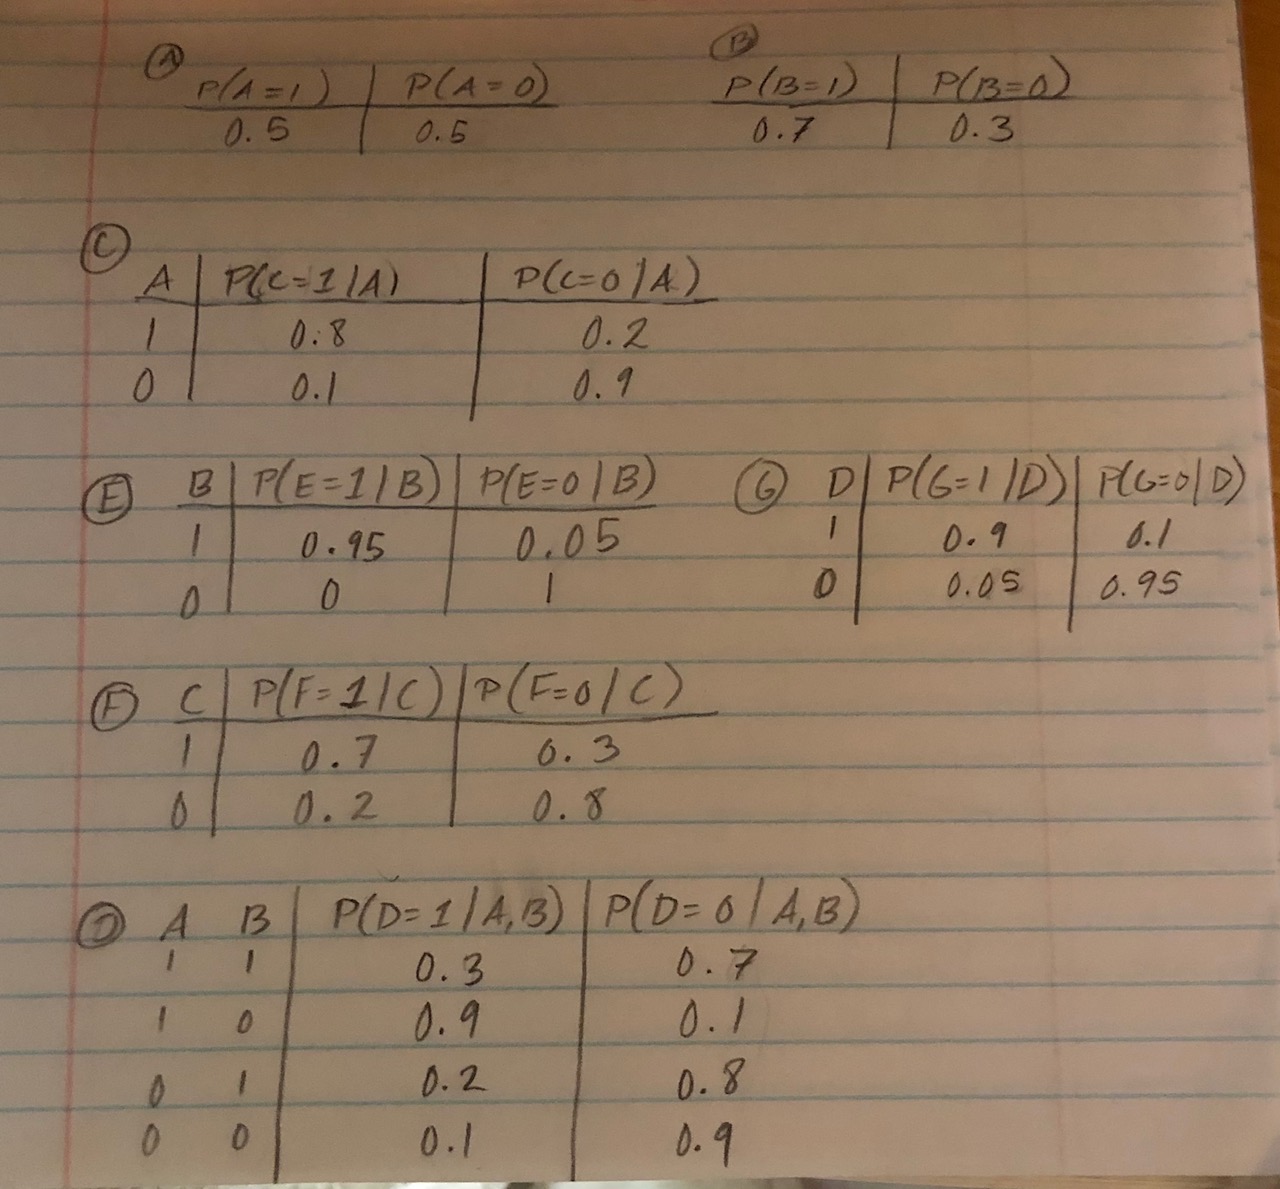 A B
P(A=1) P(A=0) P(B=1) P(B=0)
0.5 0.5 0.7 0.3
C
A P(C=1/A) P(C=0/A)
1 0.8 0.2
0 0.1 0.9
E B P(E=1/B) P(E=0/B) G D P(G=1/D) P(G=0/D)
1 0.95 0.05 1 0.9 0.1
0 0 1 0 0.05 0.95
F C P(F=1/C) P(F=0/C)
1 0.7 0.3
0 0.2 0.8
D A B P(D=1/A,B) P(D=0/A,B)
1 1 0.3 0.7
1 0 0.9 0.1
0 1 0.2 0.8
0 0 0.1 0.9